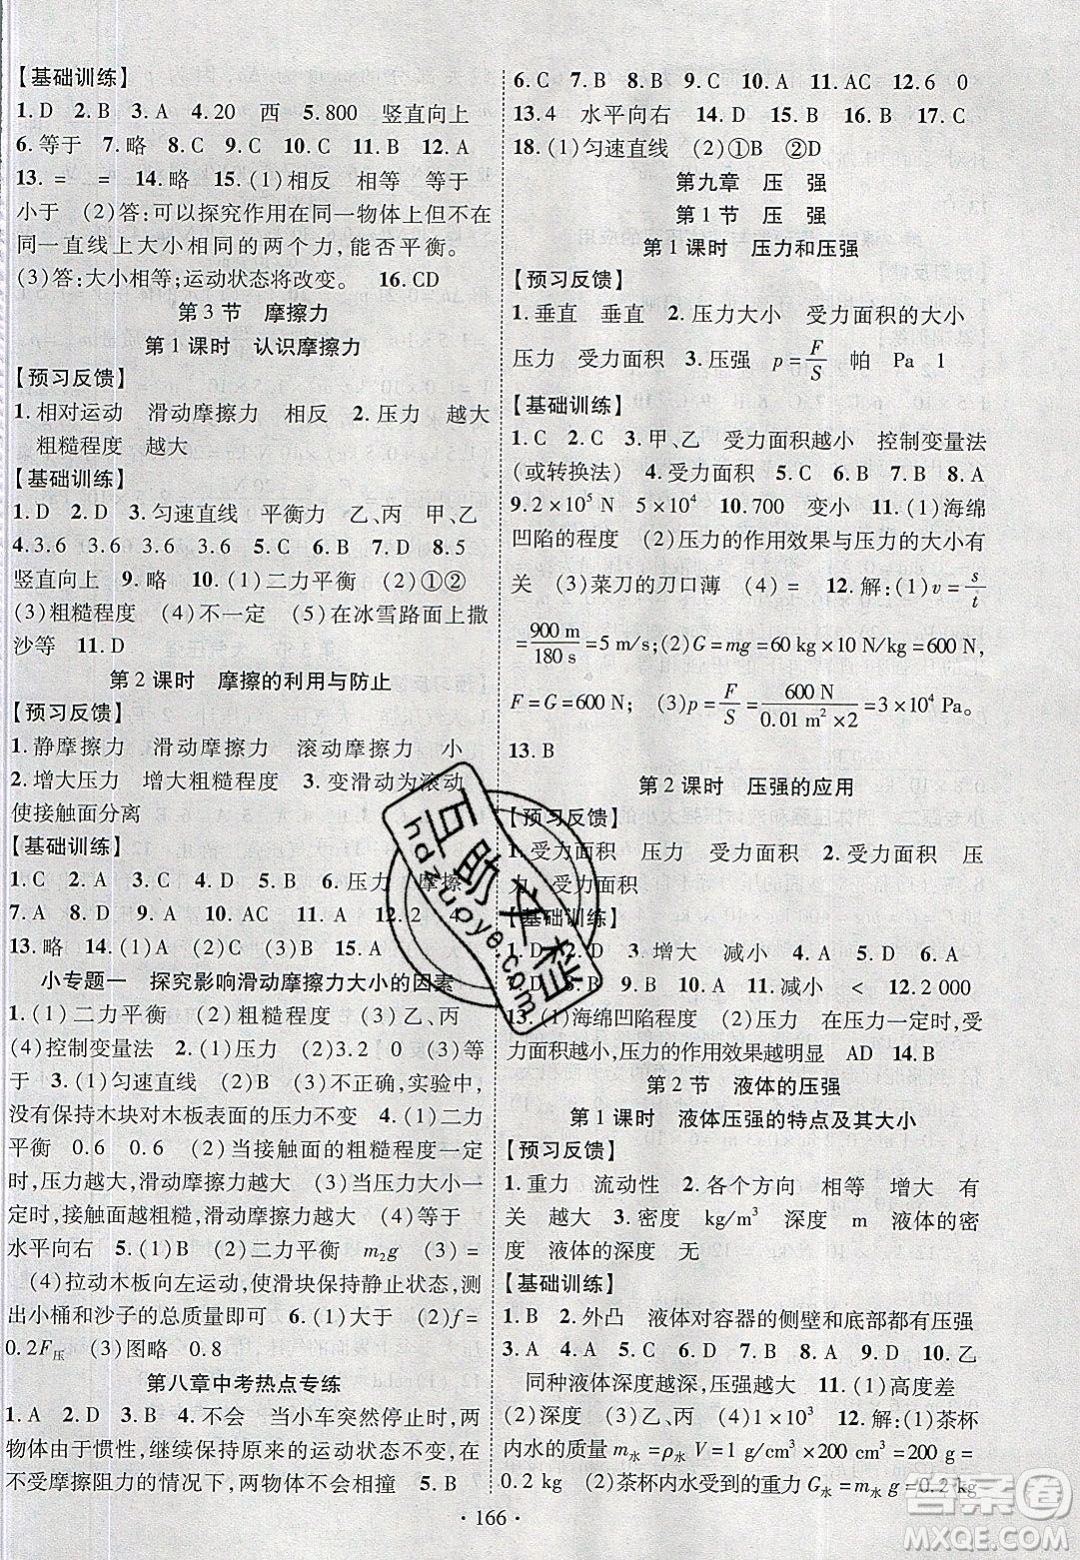 【基础训练】
1.D 2.B 3.A 4.20 西 5.800 竖直向上
6.等于 7.略 8.C 9.C 10.C 11.B 12.A
13. = = 14.略 15.(1)相反 相等 等于
小于 (2)答:可以探究作用在同一物体上且在
同一直线上大小相同的两个力,能否平衡。
(3)答:大小相等;运动状态将改变。 16.CD
第3节 摩擦力
第1课时 认识摩擦力
【预习反馈】
1.相对运动 滑动摩擦力 相反 2.压力 越大
粗糙程度 越大
【基础训练】
1.D 2.D 3.匀速直线 平衡力 乙、丙 甲、乙
4.3.6 3.6 3.6 3.6 5.B 6.B 7.D 8.5
竖直向上 9.略 10.(1)二力平衡 (2)①②
(3)粗糙程度 (4)不一定 (5)在冰雪路面上撒
沙等 11.D
第2课时 摩擦的利用与防止
【预习反馈】
1.静摩擦力 滑动摩擦力 滚动摩擦力 小
2.增大压力 增大粗糙程度 3.变滑动为滚动
使接触面分离
【基础训练】
1.C 2.A 3.D 4.B 5.B 6.压力 摩擦
7.A 8.D 9.D 10.A 11.A 12.2 4
13.略 14.(1)A (2)C (3)B 15.A
小专题一 探究影响滑动摩擦力大小的因素
1.(1)二力平衡 (2)粗糙程度 (3)乙、丙
(4)控制变量法 2.(1)压力 (2)3.2 0 (3)等
于 3.(1)匀速直线 (2)不正确,实验中,
没有保持木块对木板表面的压力不变 4.(1)二力
平衡 0.6 0.6 (2)当接触面的粗糙程度一定
时,压力越大,滑动摩擦力越大 (3)压力大小一
定时,接触面越粗糙,滑动摩擦力越大 (4)等于
水平向右 5.(1)B (2)二力平衡 m₂g (3)=
(4)拉动木板向左运动,使滑块保持静止状态,测
出小桶和沙子的总质量即可 6.(1)大于 (2)f=
0.2F压 (3)图略 0.8
第八章中考热点专练
1.A 2.D 3.D 4.不会 当小车突然停止时,两
物体由于惯性,继续保持原来的运动状态不变,在
不受摩擦阻力的情况下,两物体不会相撞 5.B
6.C 7.B 8.B 9.C 10.A 11.AC 12.6 0
13.4 水平向右 14.D 15.B 16.D 17.C
18.(1)匀速直线 (2)①B ②D
第九章 压 强
第1节 压 强
第1课时 压力和压强
【预习反馈】
1.垂直 垂直 2.压力大小 受力面积的大小
压力 受力面积 3.压强 p=F/S 帕 Pa 1
【基础训练】
1.C 2.C 3.甲、乙 受力面积越小 控制变量法
(或转换法) 4.受力面积 5.C 6.A 7.B 8.A
9.2×10⁵ N 5×10⁴ 10.700 变小 11.(1)海绵
凹陷的程度 (2)压力的作用效果与压力的大小有
关 (3)菜刀的刀口薄 (4)= 12.解:(1)v=s/t
=900 m/180 s=5 m/s;(2)G=mg=60 kg×10 N/kg=600 N,
F=G=600 N;(3)p=F/S=600 N/0.01 m²×2=3×10⁴ Pa。
13.B
第2课时 压强的应用
【预习反馈】
1.受力面积 压力 受力面积 2.受力面积 压
力 受力面积
【基础训练】
1.D 2.D 3.增大 减小 4.A 5.C 6.A
7.A 8.C 9.C 10.B 11.减小 < 12.2 000
13.(1)海绵凹陷程度 (2)压力 压力一定时,受
力面积越小,压力的作用效果越明显 AD 14.B
第2节 液体的压强
第1课时 液体压强的特点及其大小
【预习反馈】
1.重力 流动性 2.各个方向 相等 增大 有
关 越大 3.密度 kg/m³ 深度 m 液体的密
度 液体的深度 无
【基础训练】
1.B 2.外凸 液体对容器的侧壁和底部都有压强
3.D 4.A 5.A 6.A 7.C 8.C 9.B 10.乙
同种液体深度越深,压强越大 11.(1)高度差
(2)深度 (3)乙、丙 (4)1×10³ 12.解:(1)茶杯
内水的质量 m水=ρ水V=1 g/cm³×200 cm³=200 g=
0.2 kg (2)茶杯内水受到的重力 G水=m水g=0.2 kg
·166·
互助文档
hdzuoye.com
答案圈
MXQE.COM